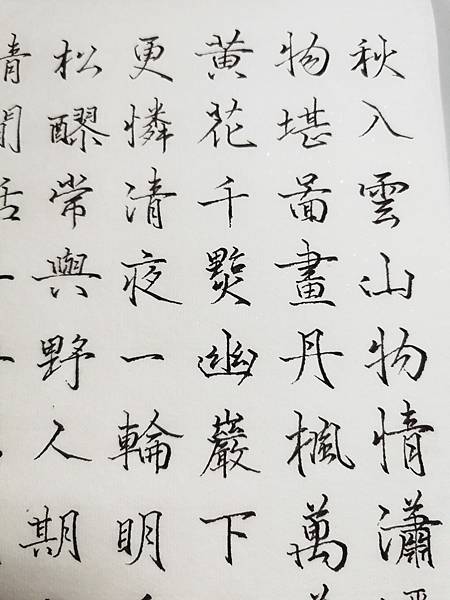 秋入雲山物情瀟
物堪圖畫丹楓萬
黃花千點幽巖下
更憐清夜一輪明
松醪常與野人期